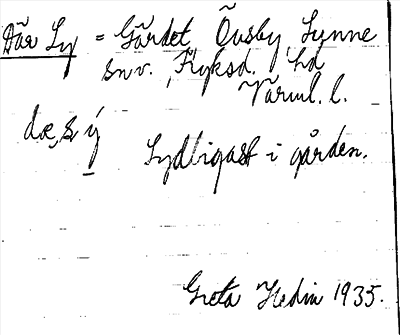 Där Ly = Gärdet Õvsby, Lynne
snv., Fryksd. hd
Värml. l.
dæ, s ý
Lydligast i gården.
Greta Hedin 1935.